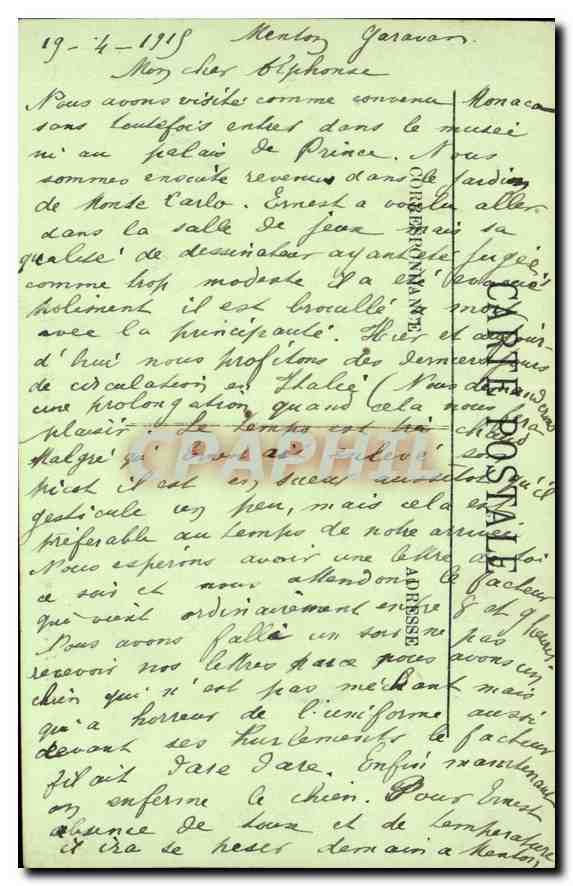 19-4-1915 Menton Garavan
Mon cher Alphonse
Nous avons visité comme convenu Monaco
sans toutefois entrer dans le musée
ni au palais de Prince. Nous
sommes ensuite revenus dans le jardin
de Monte Carlo. Ernest a voulu aller
dans la salle de jeux mais sa
qualité de dessinateur ayant été jugée
comme trop modeste il a été évacué
poliment il est brouillé à mort
avec la principauté. Hier et aujour-
d'hui nous profitons des derniers jours
de circulation en Italie (Nous demanderons
une prolongation quand cela nous
plaisir. Le temps est très chaud
Malgré qu'Ernest ait enlevé son
tricot il est en sueur aussitôt qu'il
gesticule un peu, mais cela est
préférable au temps de notre arrivée.
Nous espérons avoir une lettre de toi
ce soir et nous attendons le facteur
qui vient ordinairement entre 8 et 9 heures.
Nous avons failli un soir ne pas
recevoir nos lettres parce nous avons un
chien qui n'est pas méchant mais
qui a horreur de l'uniforme aussi
devant ses hurlements le facteur
filait dare dare. Enfin maintenant
on enferme le chien. Pour Ernest
absence de toux et de température
il ira se peser demain à Menton,
CARTE POSTALE
CORRESPONDANCE
ADRESSE
CPAPHIL